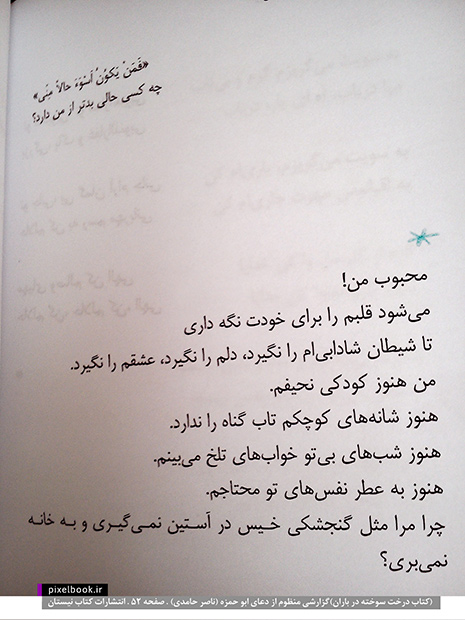 «فَمَنْ یَکُونُ أَسْوَءَ حالاً مِنّی»
چه کسی حالی بدتر از من دارد؟
محبوب من!
می‌شود قلبم را برای خودت نگه داری
تا شیطان شادابی‌ام را نگیرد، دلم را نگیرد، عشقم را نگیرد.
من هنوز کودکی نحیفم.
هنوز شانه‌های کوچکم تاب گناه را ندارد.
هنوز شب‌های بی‌تو خواب‌های تلخ می‌بینم.
هنوز به عطر نفس‌های تو محتاجم.
چرا مرا مثل گنجشکی خیس در آستین نمی‌گیری و به خانه
نمی‌بری؟
pixelbook.ir
(کتاب درخت سوخته در باران)گزارشی منظوم از دعای ابو حمزه (ناصر حامدی) . صفحه ۵۲ . انتشارات کتاب نیستان